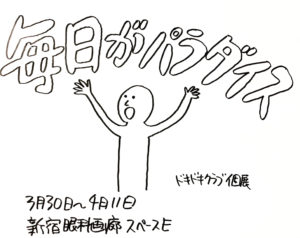 毎日がパラダイス
ドキドキクラブ個展
3月30日〜4月11日
新宿眼科画廊 スペースE